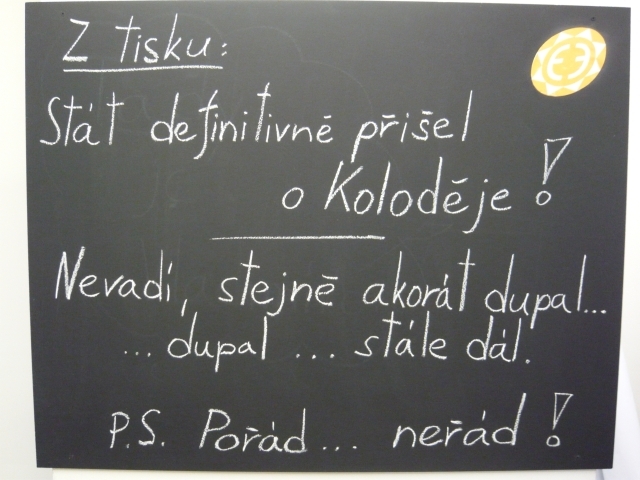 Z tisku:
Stát definitivně přišel
o Koloděje!
Nevadí, stejně akorát dupal...
... dupal ... stále dál.
P.S. Pořád... neřád!